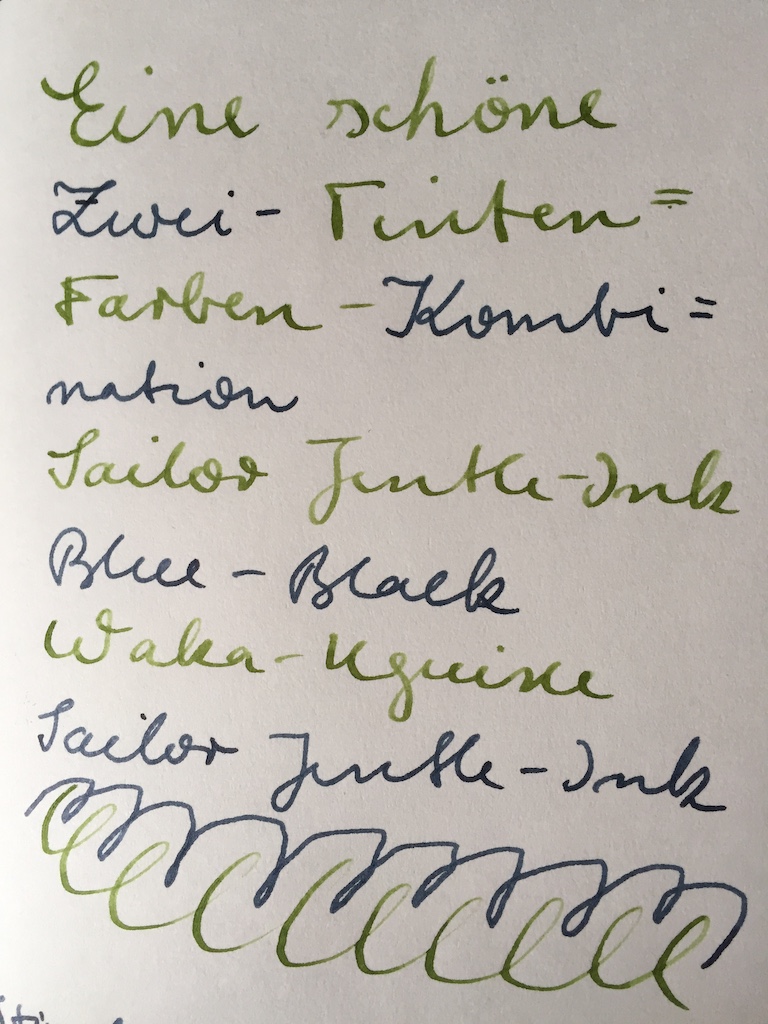 Eine schöne
Zwei- Tinten=
Farben-Kombi=
nation
Sailor Jentle-Ink
Blue-Black
Waka-Uguise
Sailor Jentle-Ink